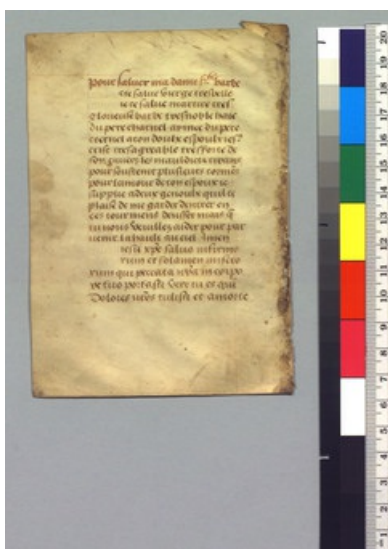 Pour saluer ma dame sᵗᵉ barbe
Je te salue vierge tresbelle
ie te salue martire tres
glorieuse barbe tresnoble haie
du pere charnel aymee du pere
eternel a ton doulx espoulx ies⁹
crist tresagreable tresforte de
son
pour soustenir plusieurs
pour lamour de ton espoux ie
supplie a deux genoulx quil te
plaise de me garder dentrer en
ces tourmens denffer mais q̃
tu nous veuillez aider pour par
uenir la hault au ciel Amen
xp̃e salus infirmo
rum et solamen misero
rum qui peccata nr̃a in corpo
re tuo portasti Vere tu es qui
Dolores nr̃os tulisti et
20
19
18
17
16
15
14
13
12
11
10
9
8
7
6
5
4
3
2
1